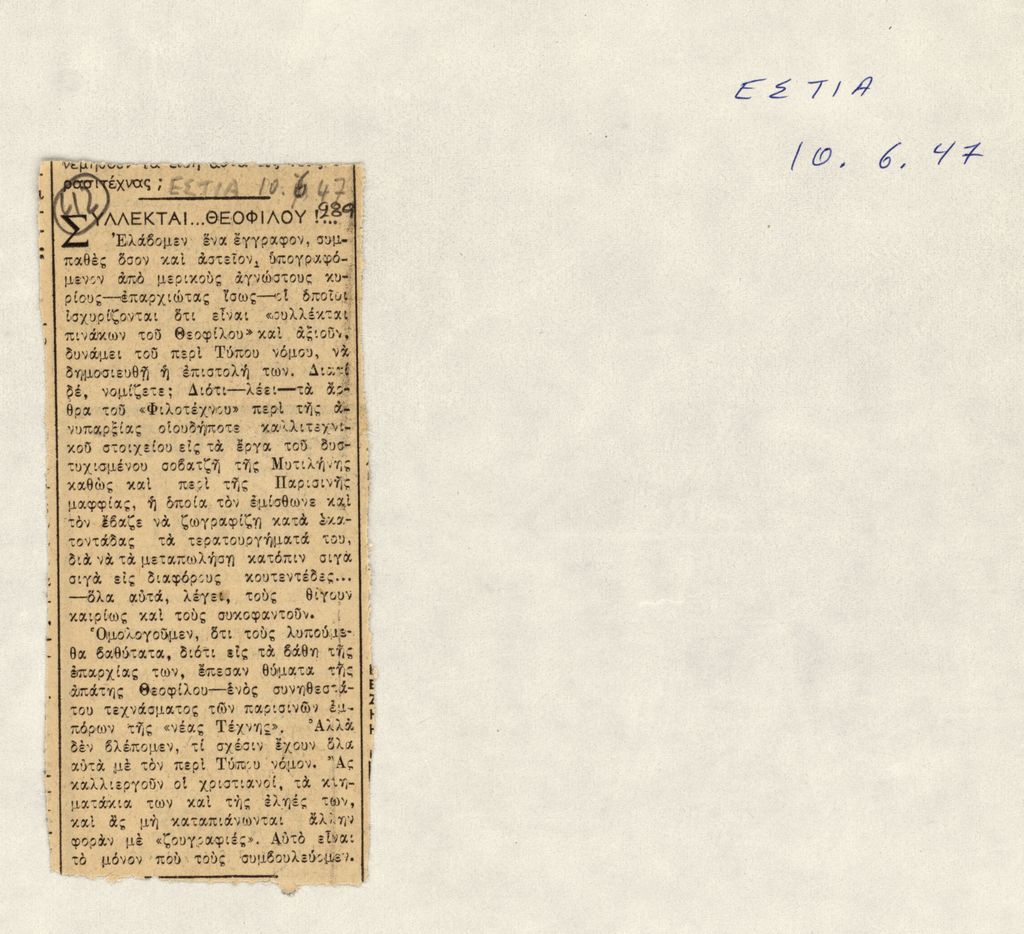 ΕΣΤΙΑ
10. 6. 47
ρασιτέχνας ;
ΕΣΤΙΑ 10. 6 47
412
989
ΣΥΛΛΕΚΤΑΙ...ΘΕΟΦΙΛΟΥ !...
Ἐλάβομεν ἕνα ἔγγραφον, συμ-
παθὲς ὅσον καὶ ἀστεῖον, ὑπογραφό-
μενον ἀπὸ μερικοὺς ἀγνώστους κυ-
ρίους—ἐπαρχιώτας ἴσως—οἱ ὁποῖοι
ἰσχυρίζονται ὅτι εἶναι «συλλέκται
πινάκων τοῦ Θεοφίλου» καὶ ἀξιοῦν,
δυνάμει τοῦ περὶ Τύπου νόμου, νὰ
δημοσιευθῇ ἡ ἐπιστολή των. Διατί
δέ, νομίζετε; Διότι—λέει—τὰ ἄρ-
θρα τοῦ «Φιλοτέχνου» περὶ τῆς ἀ-
νυπαρξίας οἱουδήποτε καλλιτεχνι-
κοῦ στοιχείου εἰς τὰ ἔργα τοῦ δυσ-
τυχισμένου σοβατζῆ τῆς Μυτιλήνης
καθὼς καὶ περὶ τῆς Παρισινῆς
μαφφίας, ἡ ὁποία τὸν ἐμίσθωνε καὶ
τὸν ἔβαζε νὰ ζωγραφίζῃ κατὰ ἑκα-
τοντάδας τὰ τερατουργήματά του,
διὰ νὰ τὰ μεταπωλήσῃ κατόπιν σιγὰ
σιγὰ εἰς διαφόρους κουτεντέδες...
—ὅλα αὐτά, λέγει, τοὺς θίγουν
καιρίως καὶ τοὺς συκοφαντοῦν.
Ὁμολογοῦμεν, ὅτι τοὺς λυπούμε-
θα βαθύτατα, διότι εἰς τὰ βάθη τῆς
ἐπαρχίας των, ἔπεσαν θύματα τῆς
ἀπάτης Θεοφίλου—ἑνὸς συνηθεστά-
του τεχνάσματος τῶν παρισινῶν ἐμ-
πόρων τῆς «νέας Τέχνης». Ἀλλὰ
δὲν βλέπομεν, τί σχέσιν ἔχουν ὅλα
αὐτὰ μὲ τὸν περὶ Τύπου νόμον. Ἂς
καλλιεργοῦν οἱ χριστιανοί, τὰ κτη-
ματάκια των καὶ τῆς ἐληές των,
καὶ ἂς μὴ καταπιάνωνται ἄλλην
φορὰν μὲ «ζουγραφιές». Αὐτὸ εἶναι
τὸ μόνον ποὺ τοὺς συμβουλεύομεν.